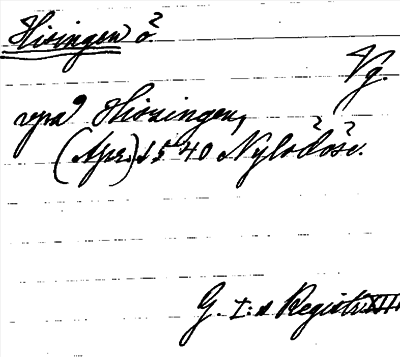 Hisingen ö.
Vg.
vpa Hiszingen,
(Apr.) 1540 Nylödöse.
G. I:s Registr. XIII